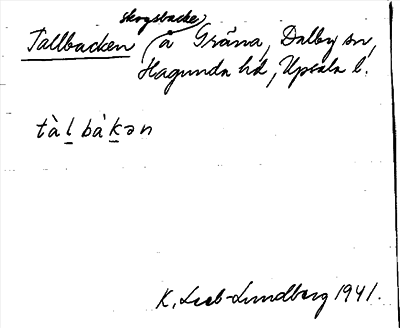 skogsbacke,
Tallbacken å Gräna, Dalby sn,
Hagunda hd, Upsala l.
tàl̲ bàk̲ən
K. Leeb-Lundberg 1941.